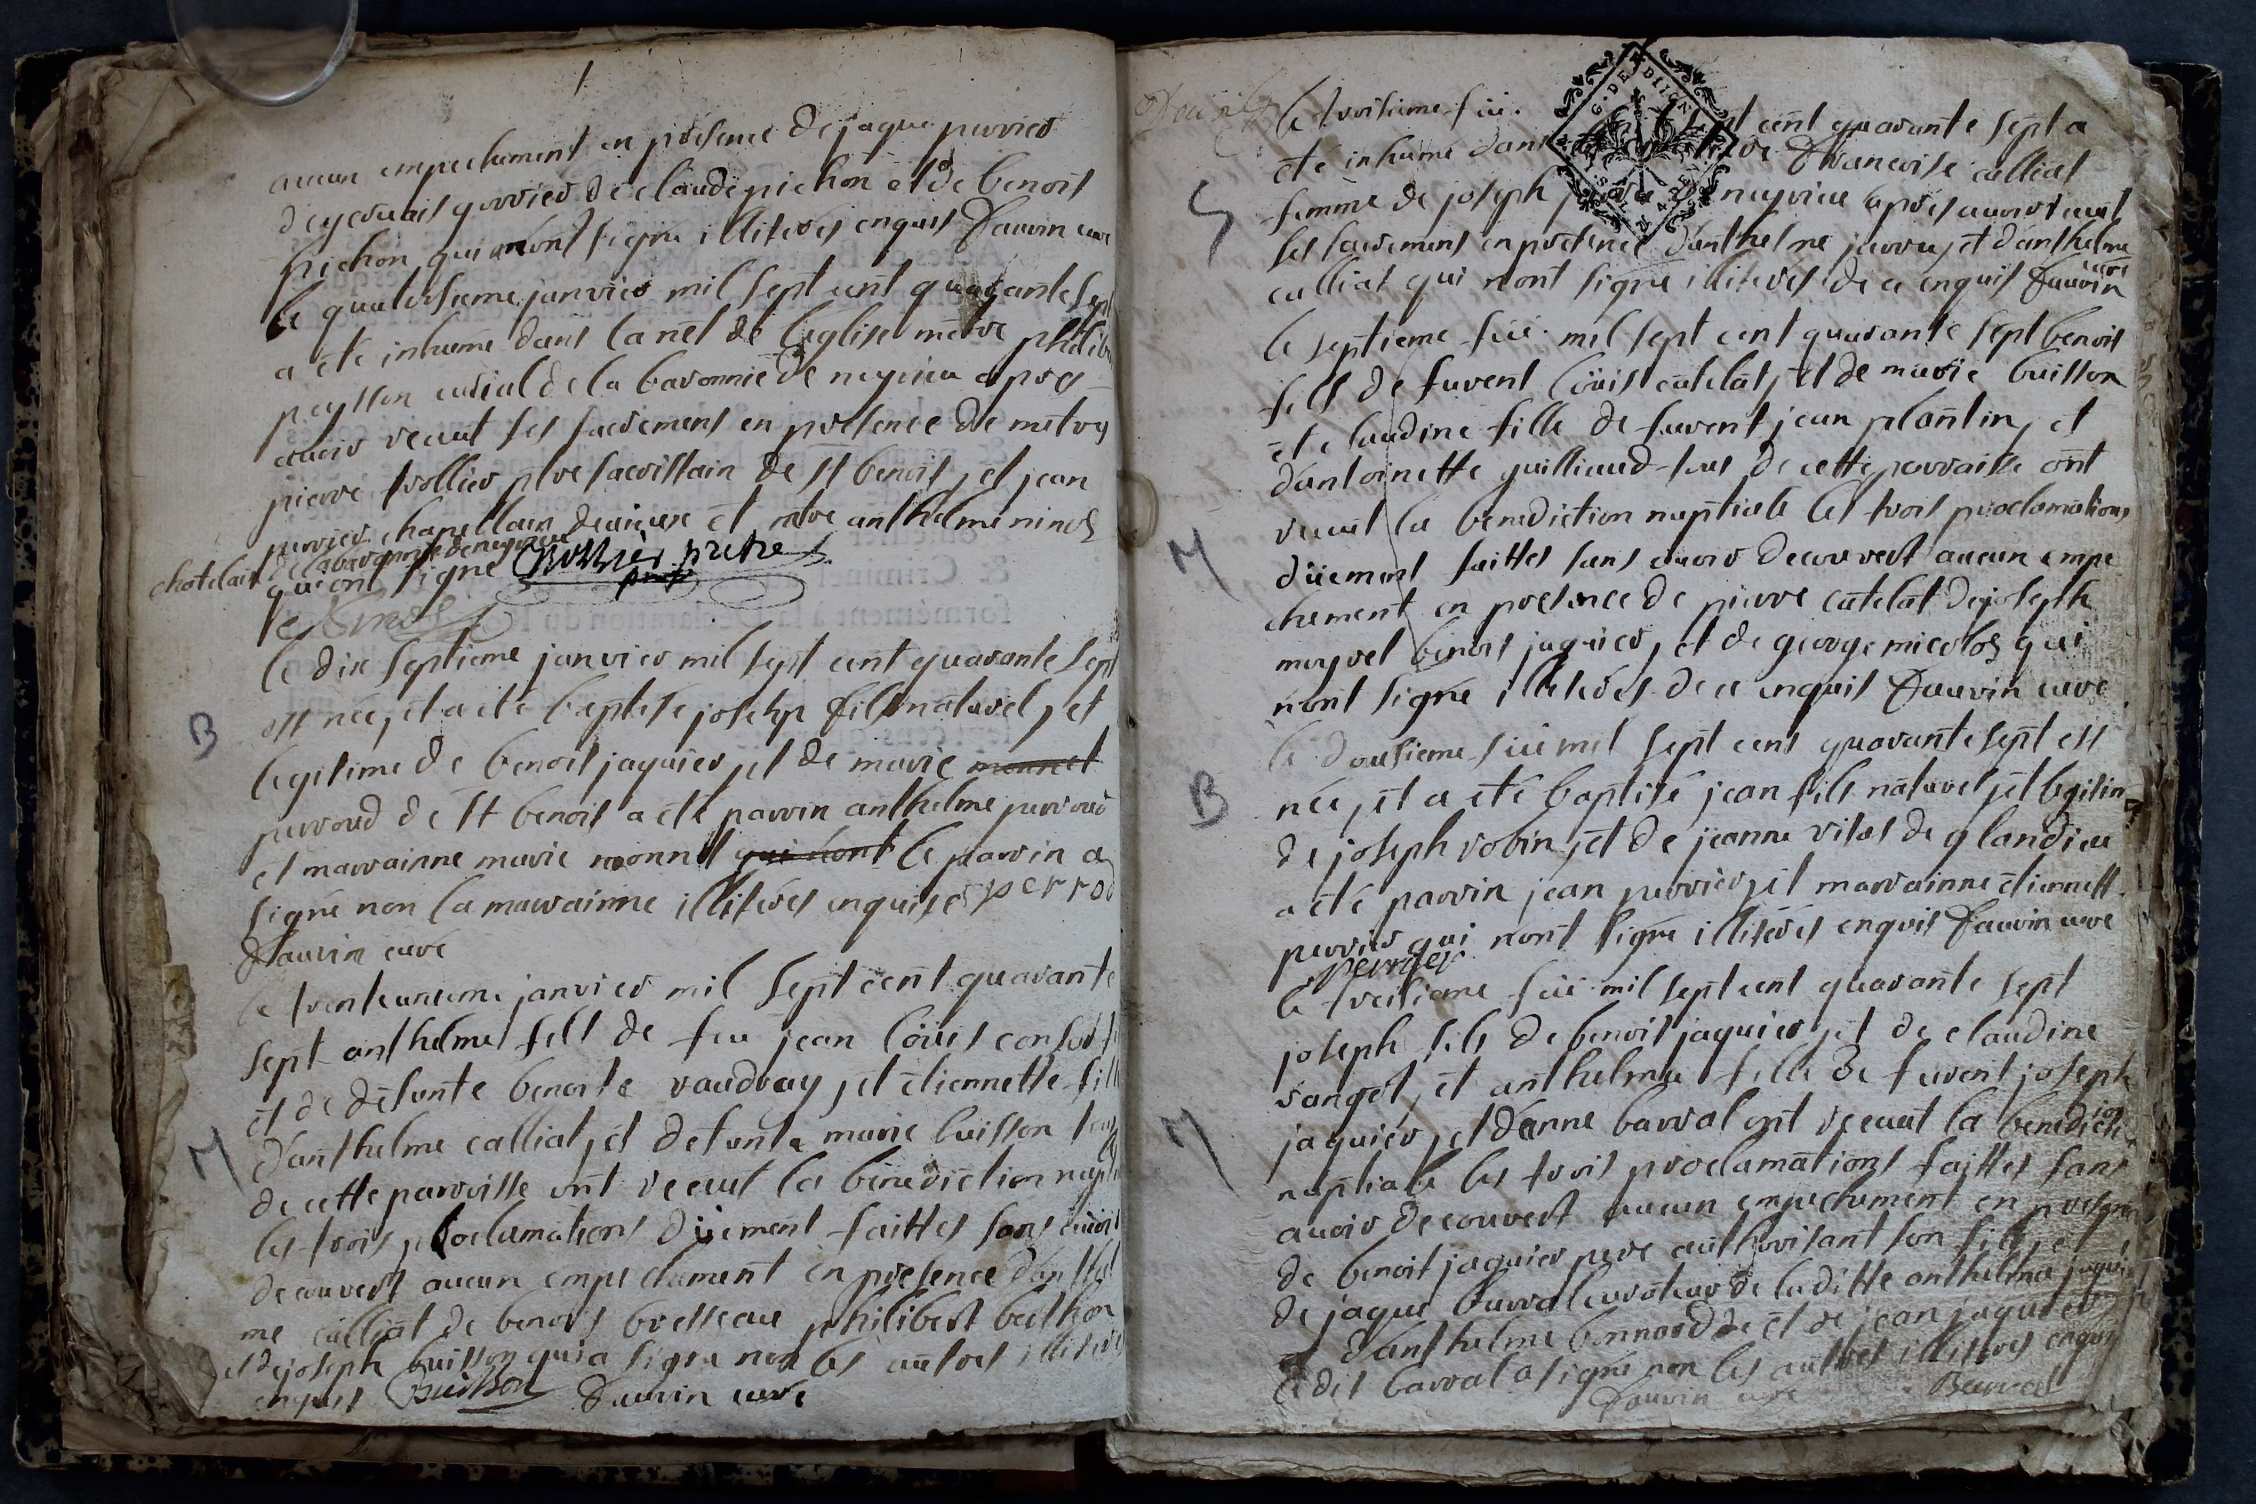 aucun empechement en presence de jaque perrier
de gervais perrier de claude pichon et de benoit
pichon qui nont signé illiterés enquis Dauvin curé
le quatorsieme janvier mil sept cent quarante sept
a eté inhumé dans la nef de leglise metre philibe
peysson curial de la baronnie de neyrieu apres
avoir recut ses sacremens en presence de metres
pierre trollier ptre sacristain de st benoit, et jean
perrier chapellain et mtre anthelme ninod
chatelain de la baronnie de neyrieu
qui ont signé
prêtre
le dix septieme janvier mil sept cent quarante sept
B
est née, et a eté baptisé josehp fils naturel, et
legitime de benoit jaquier, et de marie monnet
perroud de st benoit a eté parrin anthelme perroud
et marrainne marie monnet qui nont le parrin a
signé non la marrainne illiterés enquise perrod
Dauvin curé
le trenteunieme janvier mil sept cent quarante
sept anthelme fils de feu jean louis
et de defunte benoite vaudray, et etiennette fille
M
danthelme calliat, et defunte marie buisson tous
de cette parroisse ont recut la benediction nupt
les trois proclamations düement faittes sans avoir
decouvert aucun empechement en presence danthel
me calliat de benoit bresseau philibert berthon
et de joseph buisson qui a signé non les autres illiterés
enquis Buisson Dauvin curé
le troisieme fev. cent quarante sept a
eté inhumé dans francoise calliat
S
femme de joseph neyrieu apres avoir recut
ses sacremens en presence danthelme jarray, et danthelme
calliat qui nont signé illiterés de ce enquis Dauvin
curé
le septieme fev. mil sept cent quarante sept benoit
fils de fuvent loüis catelat, et de marie buisson
et claudine fille de fuvent jean plantin, et
dantoinette guilliaud tous de cette parroisse ont
recut la benediction nuptiale les trois proclamations
M
düement faittes sans avoir decouvert aucun empe
chement en presence de pierre catelat de joseph
benoit jaquier, et de george micoloz qui
nont signé illiterés de ce enquis Dauvin curé
le dousieme fev mil sept cent quarante sept est
B
née, et a eté baptisé jean fils naturel, et legitim
de joseph robin, et de jeanne vitoz de glandieu
a eté parrin jean perrier, et marrainne etiennett
perrier qui nont signé illiterés enquis Dauvin curé
perrier
le treisieme fev mil sept cent quarante sept
joseph fils de benoit jaquier, et de claudine
vanget, et anthelma fille de fuvent joseph
M
jaquier, et danne barral ont recut la benedicti
ion
nuptiale les trois proclamations faittes sans
avoir decouvert aucun empechement en presence
de benoit jaquier pere authorisant son fils, et
de jaque barral curateur de laditte anthelma jaquier
et danthelme bonnard et de jean jaquier
le dit barral a signé non les autres illiterés enquis
Dauvin curé Barral